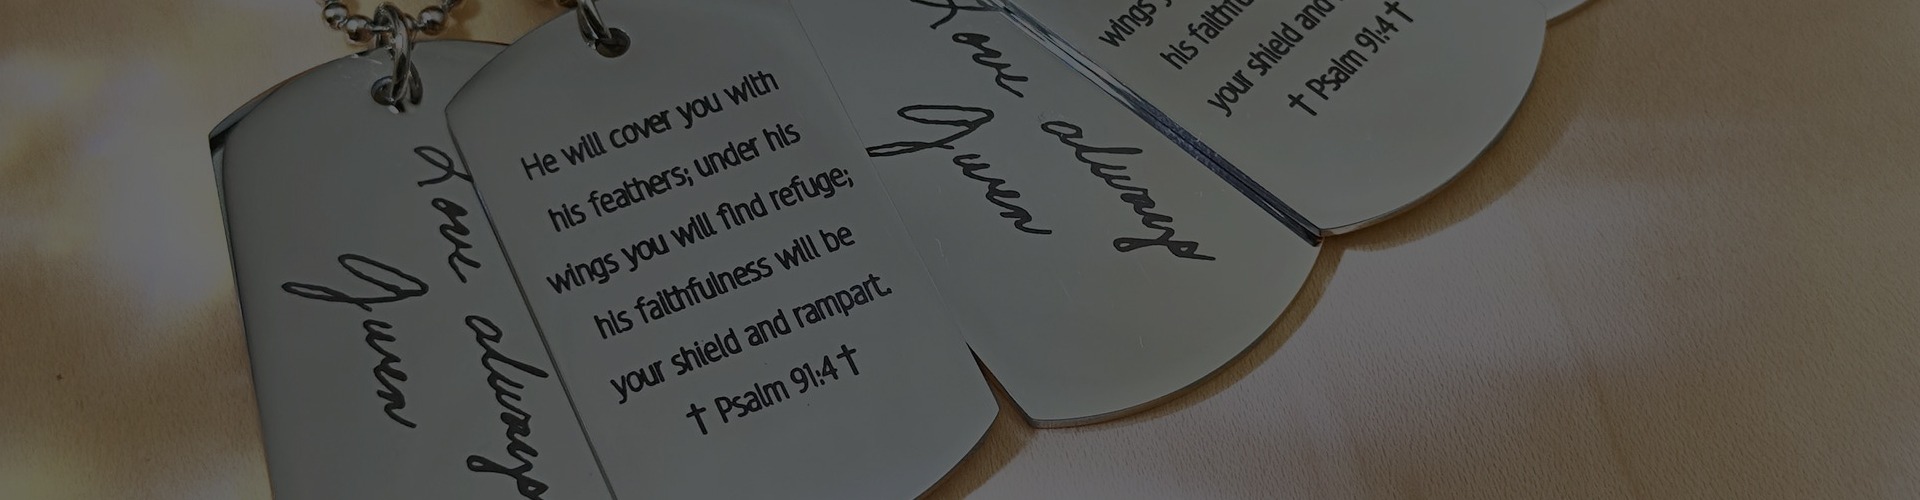 Love always
Gwen
He will cover you with
his feathers; under his
wings you will find refuge;
his faithfulness will be
your shield and rampart.
† Psalm 91:4 †
Love always
Gwen
wings
his faithfu
your shield and
† Psalm 91:4 †